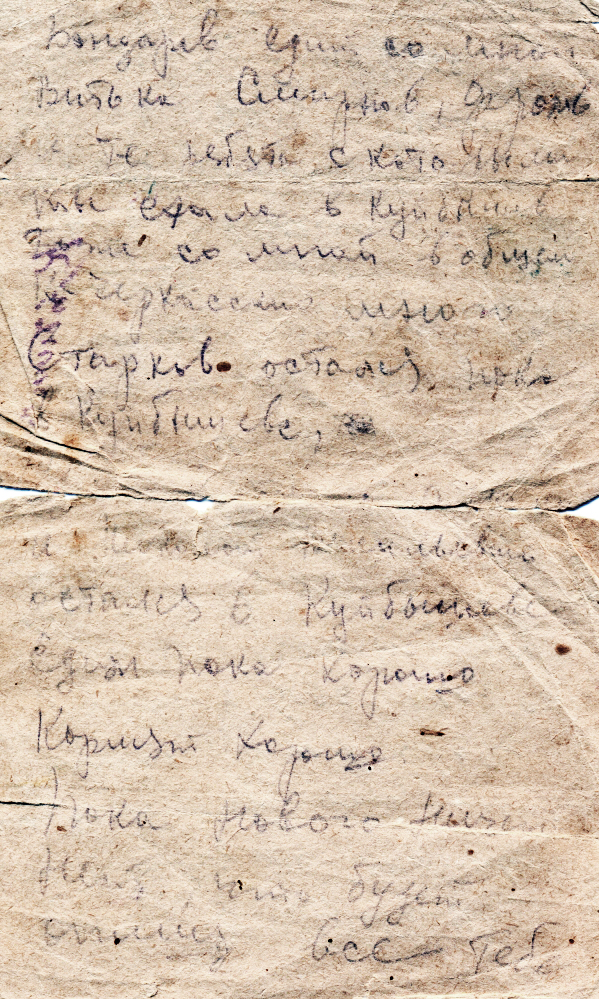 Бондарев едит со мной
Витька Смирнов,
и те ребята с которыми
мы ехали в Куйбышев
тоже со мной в общем
Черкасский много
Старков остался пока
в Куйбышеве,
и
остался в Куйбышеве
Едим пока хорошо
Кормят хорошо
Пока нового ниче
Нет, что будет
опишу все тебе